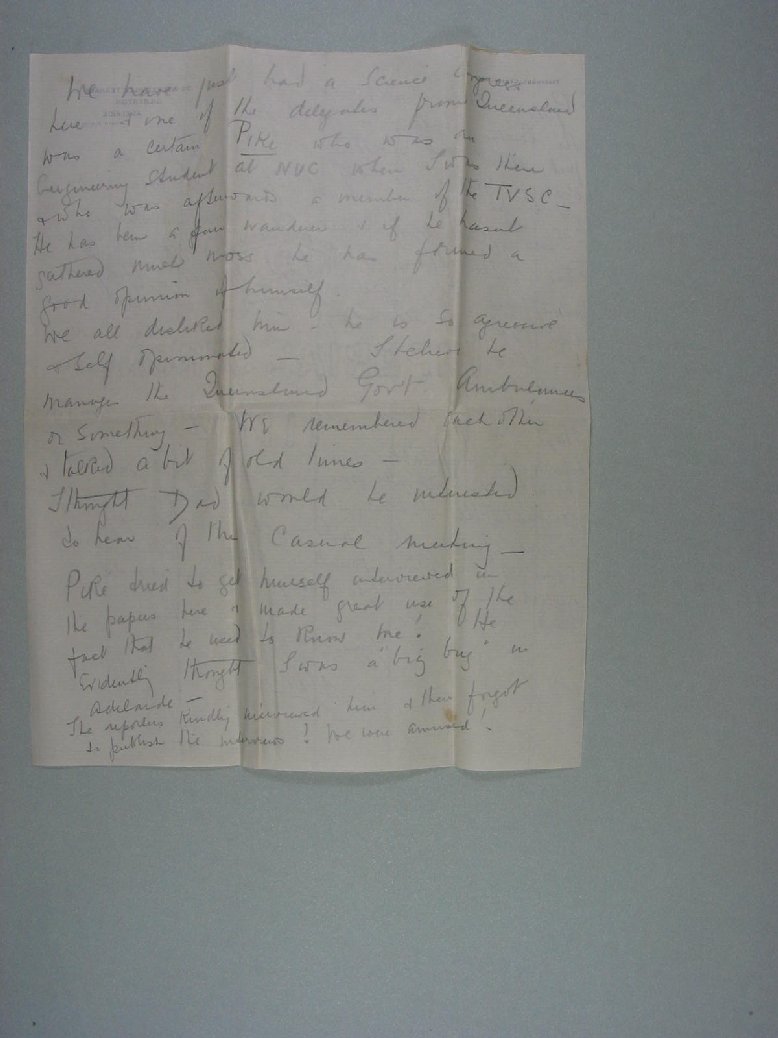 We have just had a Science Congress
here & one of the delegates from Queensland
was a certain Pike who was an
Engineering Student at NUC when I was there
& who was afterwards a member of the TVSC –
He has been a great wanderer & if he hasnt
gathered much moss he has formed a
good opinion of himself.
We all disliked him – he is so
& self opinionated – I believe he
manages the Queensland Govt Ambulances
or something – We remembered each other
& talked a bit of old times –
I thought Dad would be interested
to hear of the casual meeting –
Pike tried to get himself interviewed in
the papers here & made great use of the
fact that he used to know me! He
evidently thought I was a "big bug" in
Adelaide –
The reporters kindly interviewed him & then forgot
to publish the interviews! We were amused!